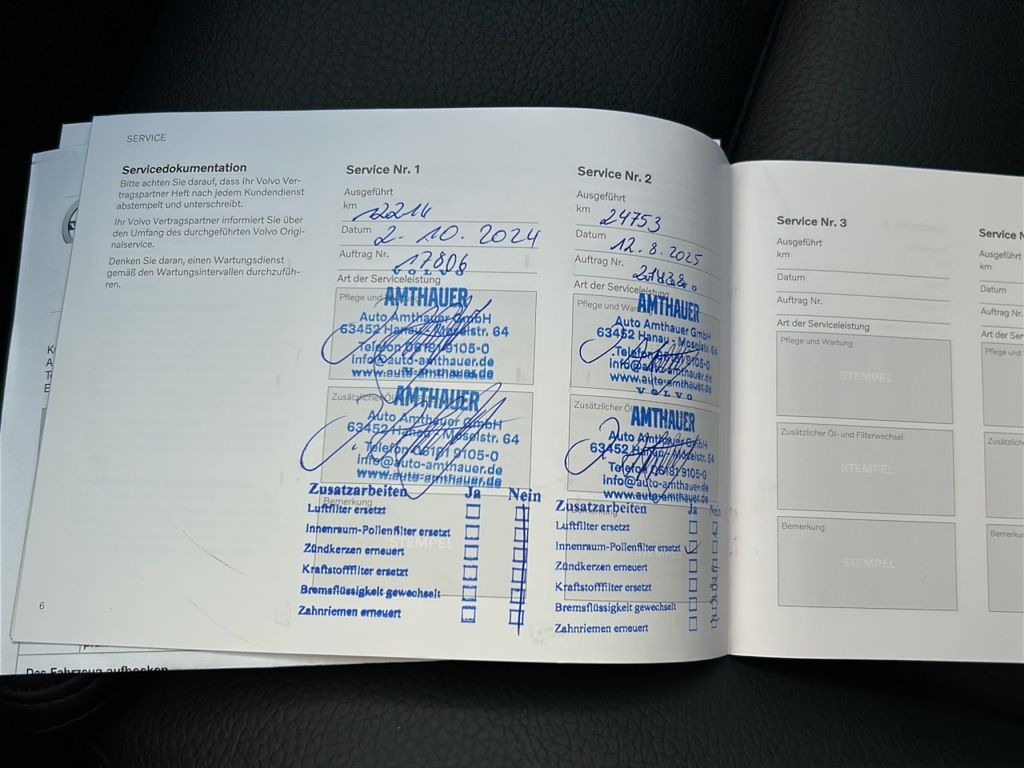 SERVICE
Servicedokumentation
Bitte achten Sie darauf, dass Ihr Volvo Ver-
tragspartner Heft nach jedem Kundendienst
abstempelt und unterschreibt.
Ihr Volvo Vertragspartner informiert Sie über
den Umfang des durchgeführten Volvo Origi-
nalservice.
Denken Sie daran, einen Wartungsdienst
gemäß den Wartungsintervallen durchzufüh-
ren.
6
Das Fahrzeug aufbocken
Service Nr. 1
Ausgeführt
km 12214
Datum 2. 10. 2024
Auftrag Nr. 17806
VOLVO
Art der Serviceleistung
Pflege und
AMTHAUER
Auto Amthauer GmbH
63452 Hanau - Moselstr. 64
Telefon 06181 9105-0
info@auto-amthauer.de
www.auto-amthauer.de
Zusätzlicher Öl-
AMTHAUER
Auto Amthauer GmbH
63452 Hanau - Moselstr. 64
Telefon 06181 9105-0
info@auto-amthauer.de
www.auto-amthauer.de
Zusatzarbeiten Ja Nein
Bemerkung
Luftfilter ersetzt
Innenraum-Pollenfilter ersetzt
STEMPEL
Zündkerzen erneuert
Kraftstofffilter ersetzt
Bremsflüssigkeit gewechselt
Zahnriemen erneuert
Service Nr. 2
Ausgeführt
km 24753
Datum 12. 8. 2025
Auftrag Nr.
Art der Serviceleistung
Pflege und War
AMTHAUER
Auto Amthauer GmbH
63452 Hanau - Moselstr. 64
Telefon 06181 9105-0
info@auto-amthauer.de
www.auto-amthauer.de
VOLVO
Zusätzlicher Ö
AMTHAUER
Auto Amthauer GmbH
63452 Hanau - Moselstr. 64
Telefon 06181 9105-0
info@auto-amthauer.de
www.auto-amthauer.de
Zusatzarbeiten Ja Nein
Luftfilter ersetzt
Innenraum-Pollenfilter ersetzt
Zündkerzen erneuert
Kraftstofffilter ersetzt
Bremsflüssigkeit gewechselt
Zahnriemen erneuert
Service Nr. 3
Ausgeführt
km
Datum
Auftrag Nr.
Art der Serviceleistung
Pflege und Wartung
STEMPEL
Zusätzlicher Öl- und Filterwechsel
STEMPEL
Bemerkung
STEMPEL
Service N
Ausgeführt
km
Datum
Auftrag Nr.
Art der Se
Pflege und
Zusätzlich
Bemerku